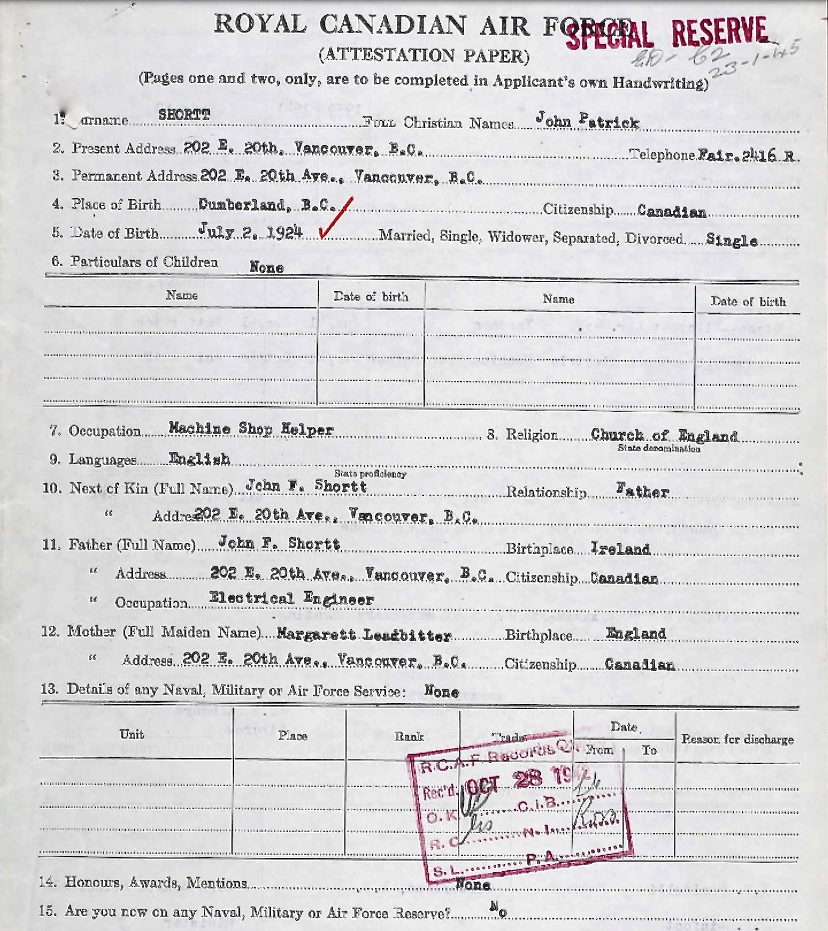 ROYAL CANADIAN AIR FORCE
SPECIAL RESERVE
(ATTESTATION PAPER)
23-1-45
(Pages one and two, only, are to be completed in Applicant's own Handwriting)
1. urname SHORTT Full Christian Names John Patrick
2. Present Address 202 E. 20th, Vancouver, B.C. Telephone Fair.2416 R.
3. Permanent Address 202 E. 20th Ave., Vancouver, B.C.
4. Place of Birth Cumberland, B.C. Citizenship Canadian
5. Date of Birth July 2, 1924 Married, Single, Widower, Separated, Divorced Single
6. Particulars of Children None
Name Date of birth Name Date of birth
7. Occupation Machine Shop Helper 8. Religion Church of England
State denomination
9. Languages English
State proficiency
10. Next of Kin (Full Name) John F. Shortt Relationship Father
" Addre 202 E. 20th Ave., Vancouver, B.C.
11. Father (Full Name) John F. Shortt Birthplace Ireland
" Address 202 E. 20th Ave., Vancouver, B.C. Citizenship Canadian
" Occupation Electrical Engineer
12. Mother (Full Maiden Name) Margarett Leadbitter Birthplace England
" Address 202 E. 20th Ave., Vancouver, B.C. Citizenship Canadian
13. Details of any Naval, Military or Air Force Service: None
Unit Place Rank Trade Date From To Reason for discharge
R.C.A.F. Records
Rec'd. OCT 28 19
O.K. C.I.B.
R.C. N.I.
S.L. P.A.
14. Honours, Awards, Mentions None
15. Are you now on any Naval, Military or Air Force Reserve? No